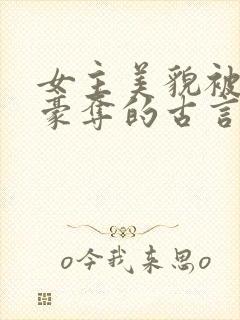 女主美貌被
豪夺的古言
o今我来思o